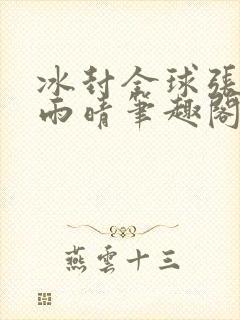 冰封全球張
雨晴筆趣閣
燕雲十三